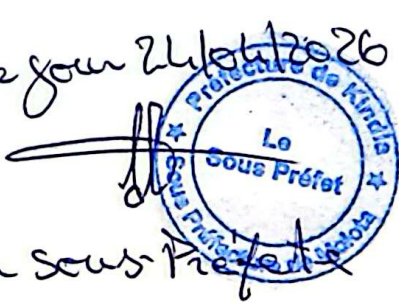 jour 24/04/2026
Préfecture de Kindia
Le
Sous Préfet
Sous Préfecture de Molota
sous-Préfet